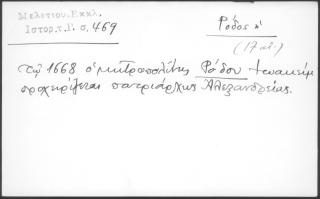 Μελετίου. Εκκλ.
Ιστορ. τ. Γ. σ. 469
Ρόδος
(17 αι.)
Τῷ 1668 ὁ μητροπολίτης Ρόδου Ιωακείμ
προχειρίζεται πατριάρχης Ἀλεξανδρείας.